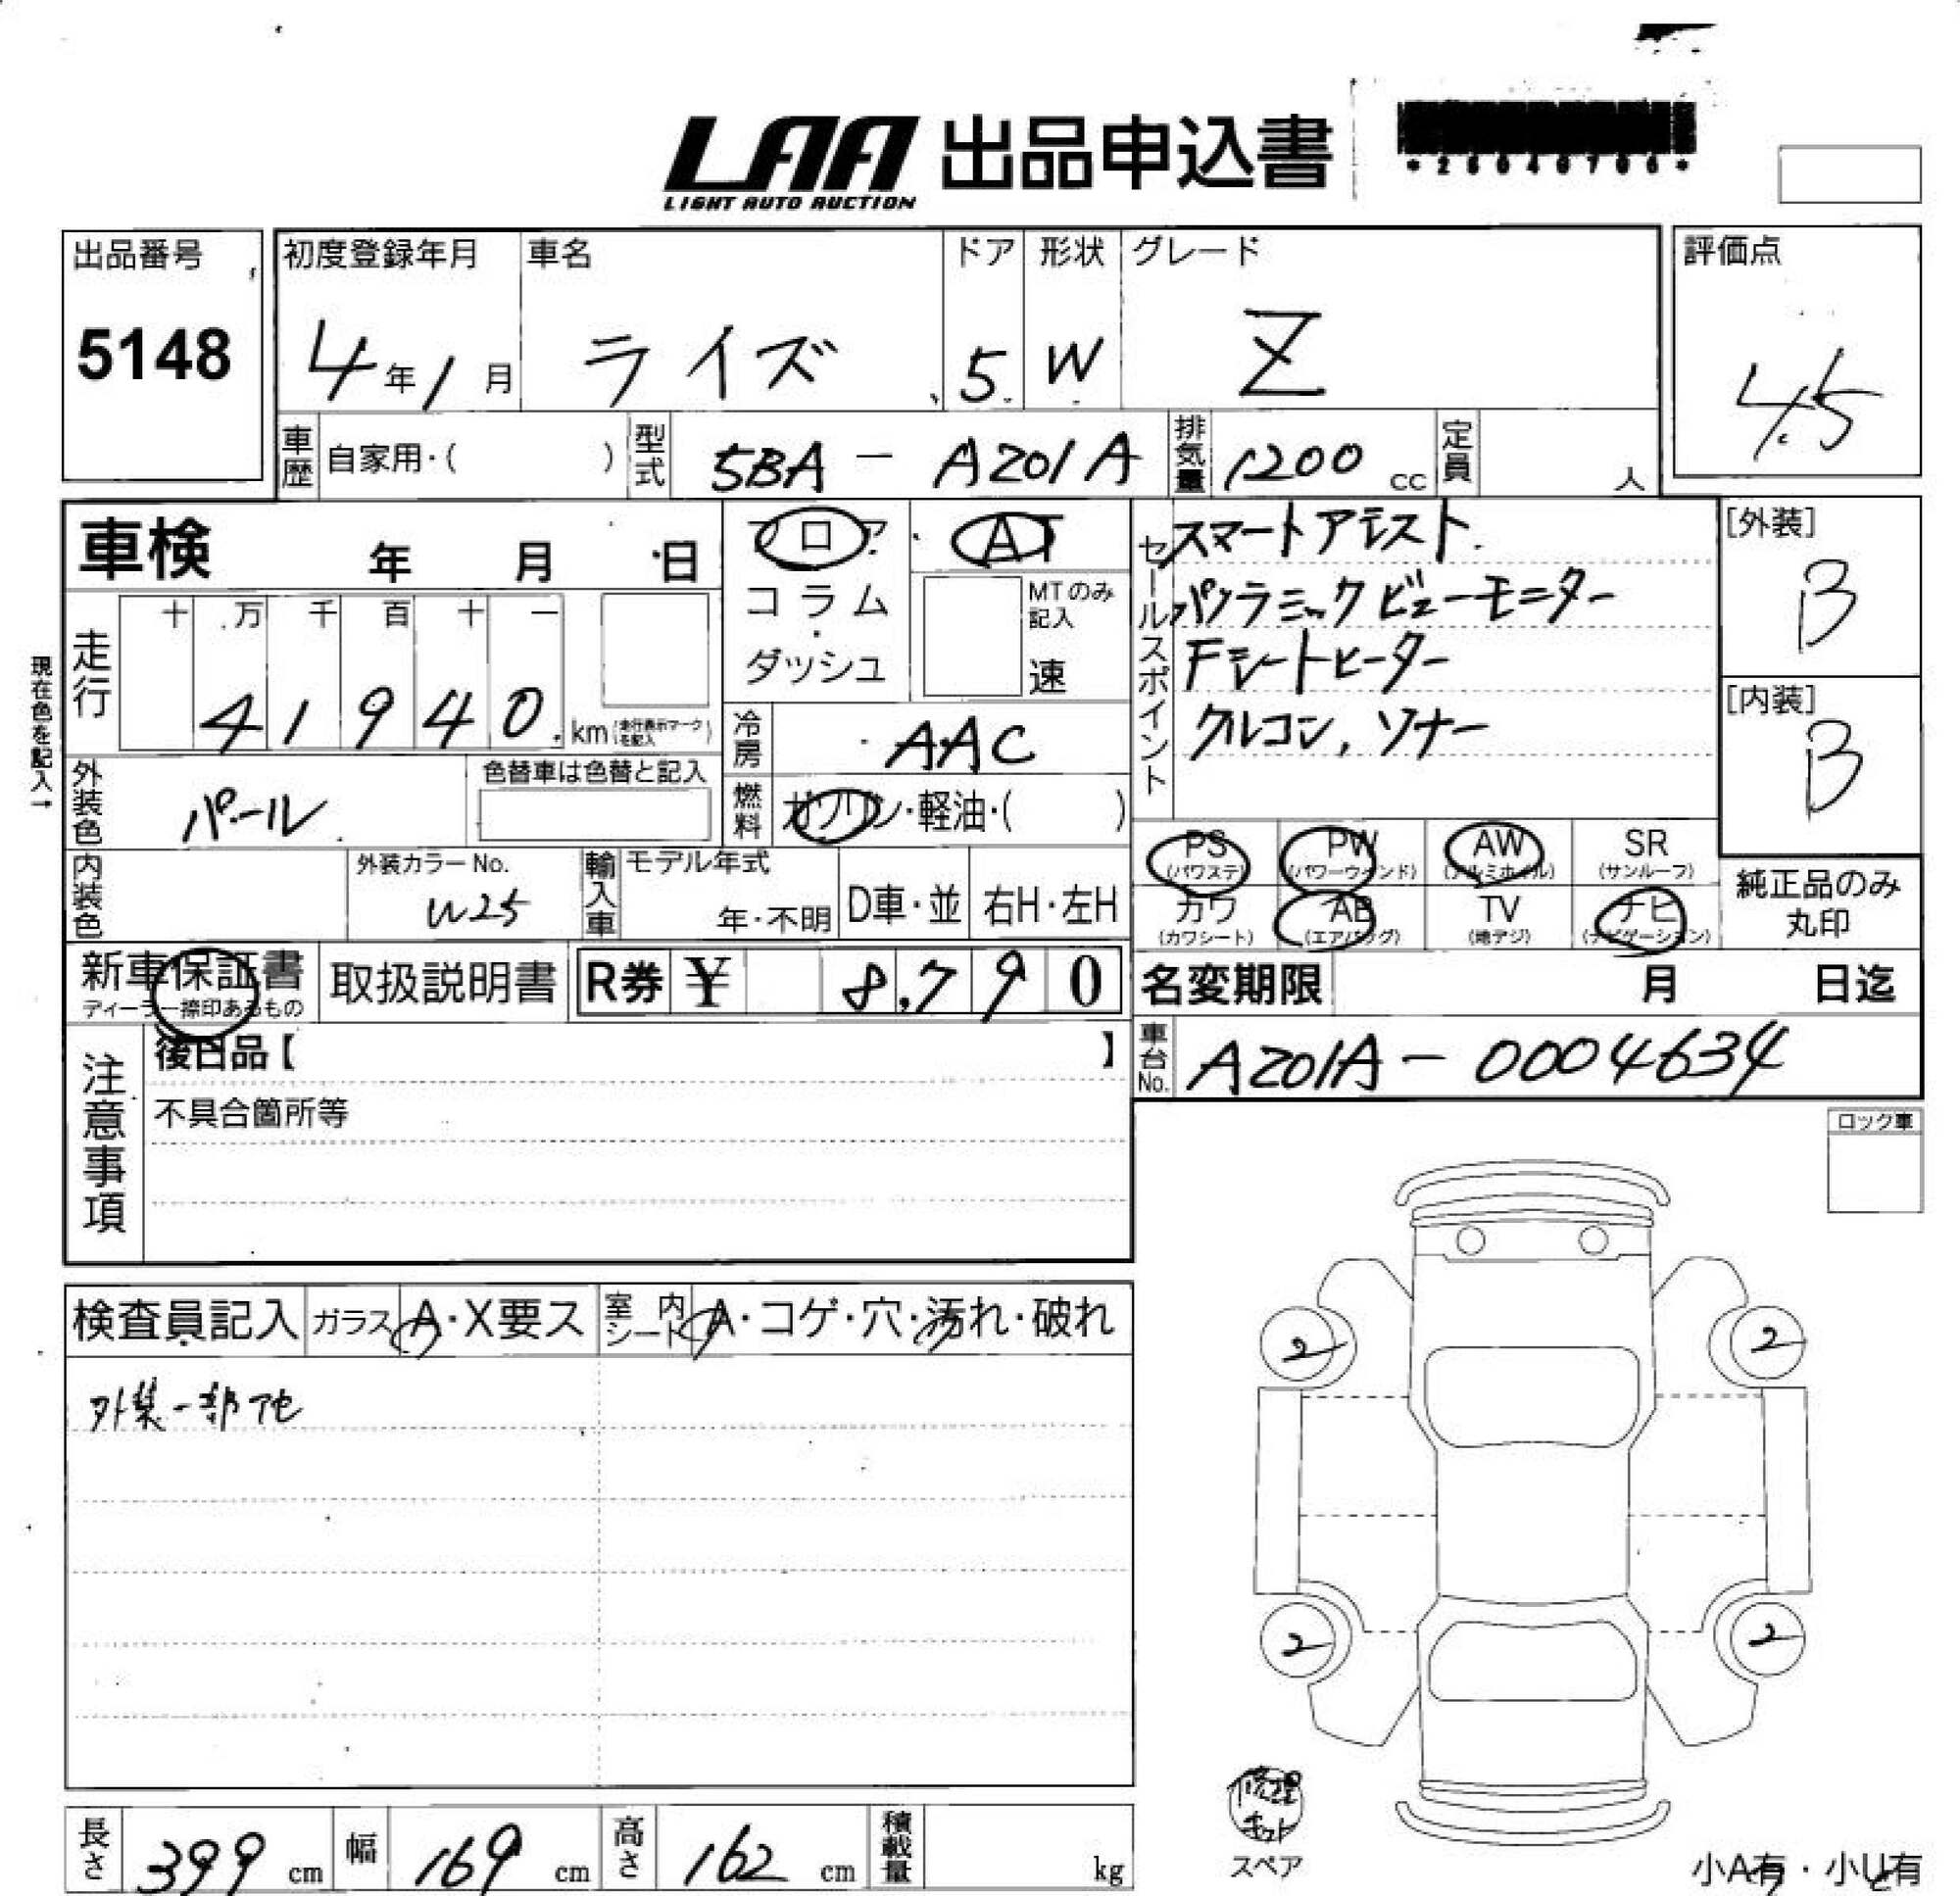 LAA 出品申込書
LIGHT AUTO AUCTION
*26040706*
出品番号 初度登録年月 車名 ドア 形状 グレード 評価点
5148 4年1月 ライズ 5 W Z 4.5
車歴 自家用・( ) 型式 5BA - A201A 排気量 1200 cc 定員 人
車検 年 月 日 フロア AT
コラム・ダッシュ MTのみ記入 速
セールスポイント
スマートアシスト
パノラミックビューモニター
Fシートヒーター
クルコン, ソナー
[外装]
B
[内装]
B
現在色を記入→
走行 十 万 千 百 十 一
41940 km (走行表示マークを記入)
冷房 AAC
外装色 パール 色替車は色替と記入
燃料 ガソリン・軽油・( )
内装色 外装カラーNo. W25 輸入車 モデル年式 年・不明 D車・並 右H・左H
PS (パワステ) PW (パワーウインド) AW (アルミホイル) SR (サンルーフ)
カワ (カワシート) AB (エアバッグ) TV (地デジ) ナビ (ナビゲーション)
純正品のみ
丸印
新車保証書 取扱説明書 R券 ¥ 8,790
ディーラー捺印あるもの
名変期限 月 日迄
車台No. A201A-0004634
注意事項
後日品【 】
不具合箇所等
ロック車
検査員記入 ガラス A・X要ス 室内シート A・コゲ・穴・汚れ・破れ
外装一部アセ
2 2
2 2
修理
キット
スペア
長さ 399 cm 幅 169 cm 高さ 162 cm 積載量 kg
小A有・小U有